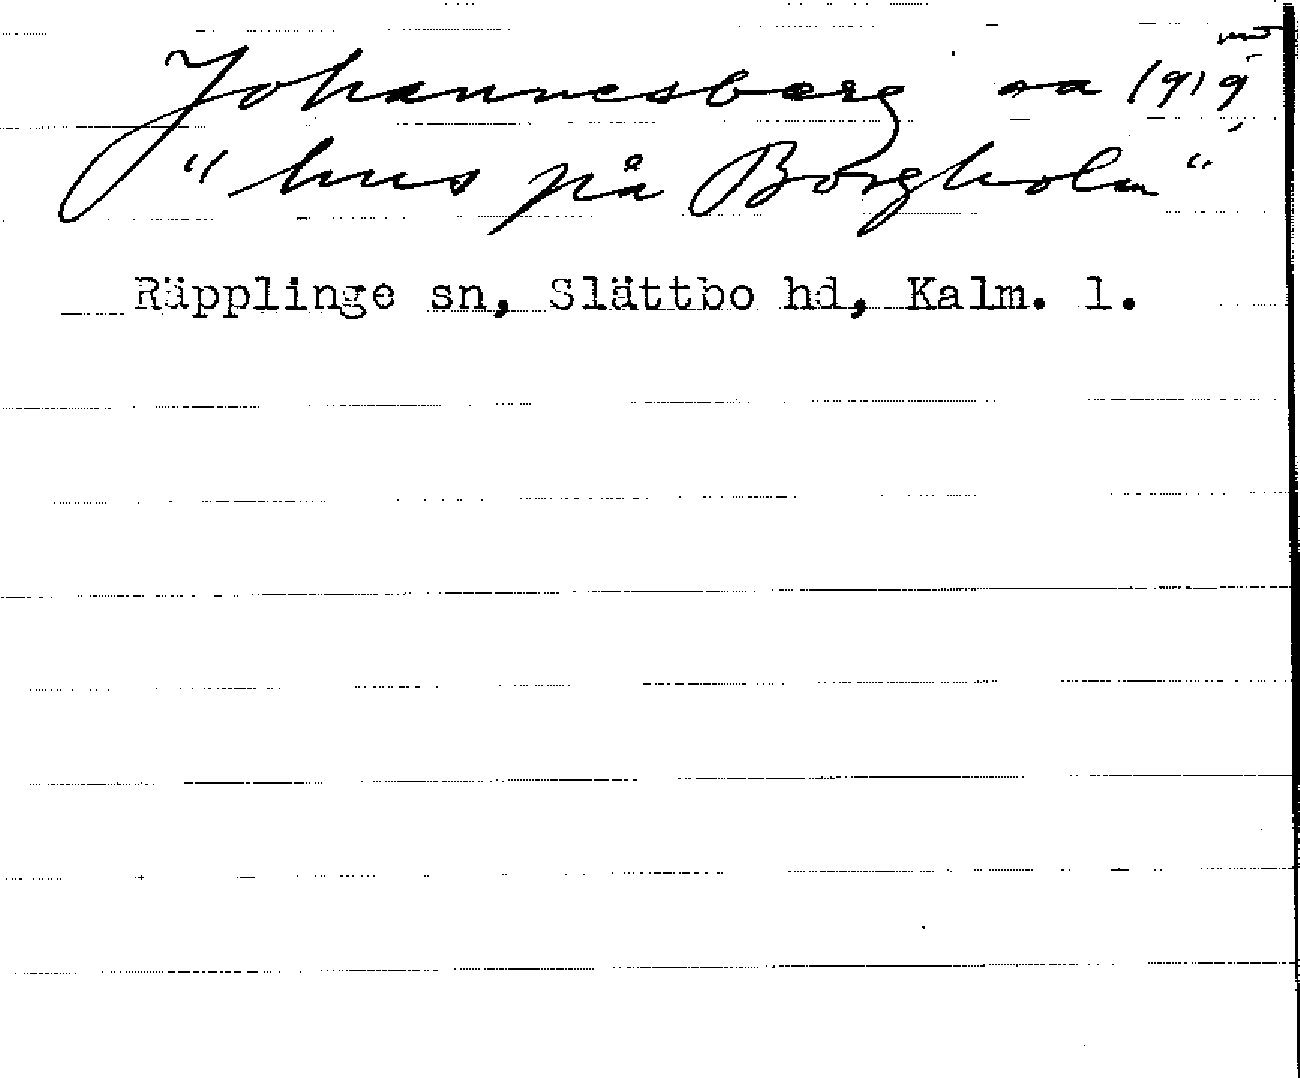 Johannesberg sa 1919
"hus på Borgholm"
Räpplinge sn, Slättbo hd, Kalm. l.